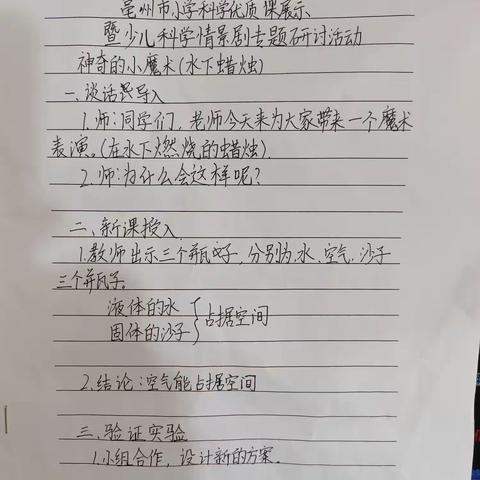 亳州市小学科学优质课展示
暨少儿科学情景剧专题研讨活动
神奇的小魔术(水下蜡烛)
一、谈话导入
1.师:同学们,老师今天来为大家带来一个魔术
表演。(在水下燃烧的蜡烛)
2.师:为什么会这样呢?
二、新课授入
1.教师出示三个瓶子,分别为水、空气、沙子
三个瓶子。
液体的水
占据空间
固体的沙子
2.结论:空气能占据空间
三、验证实验
1.小组合作,设计新的方案。